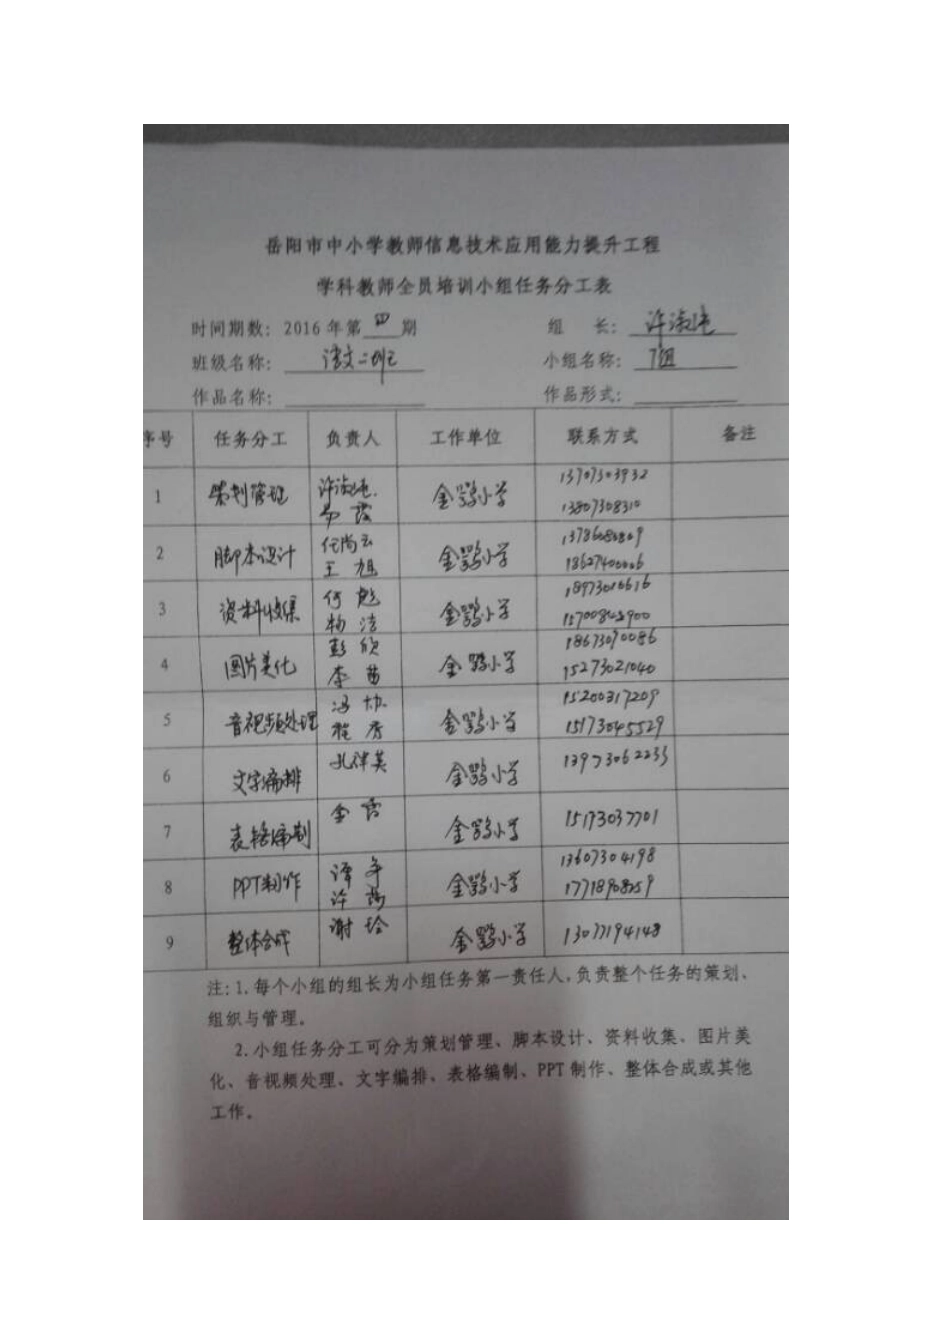 岳阳市中小学教师信息技术应用能力提升工程
学科教师全员培训小组任务分工表
时间期数：2016年第四期 组 长：许淑纯
班级名称：语文二班 小组名称：7组
作品名称： 作品形式：
序号 任务分工 负责人 工作单位 联系方式 备注
1 策划管理 许淑纯 金鹗小学 13707303932
13807308310
2 脚本设计 任尚云 王旭 金鹗小学 13786080809
18627400006
3 资料收集 何彪 杨洁 金鹗小学 18973010616
15700845900
4 图片美化 彭欣 李苗 金鹗小学 18673090086
15273021040
5 音视频处理 冯协 程方 金鹗小学 15200317209
15173045529
6 文字编排 孔律英 金鹗小学 13973062233
7 表格编制 金鹗小学 15173037701
8 PPT制作 谭 许 金鹗小学 13607304198
17718908259
9 整体合成 谢玲 金鹗小学 13077194148
注：1.每个小组的组长为小组任务第一责任人，负责整个任务的策划、
组织与管理。
2.小组任务分工可分为策划管理、脚本设计、资料收集、图片美
化、音视频处理、文字编排、表格编制、PPT 制作、整体合成或其他
工作。